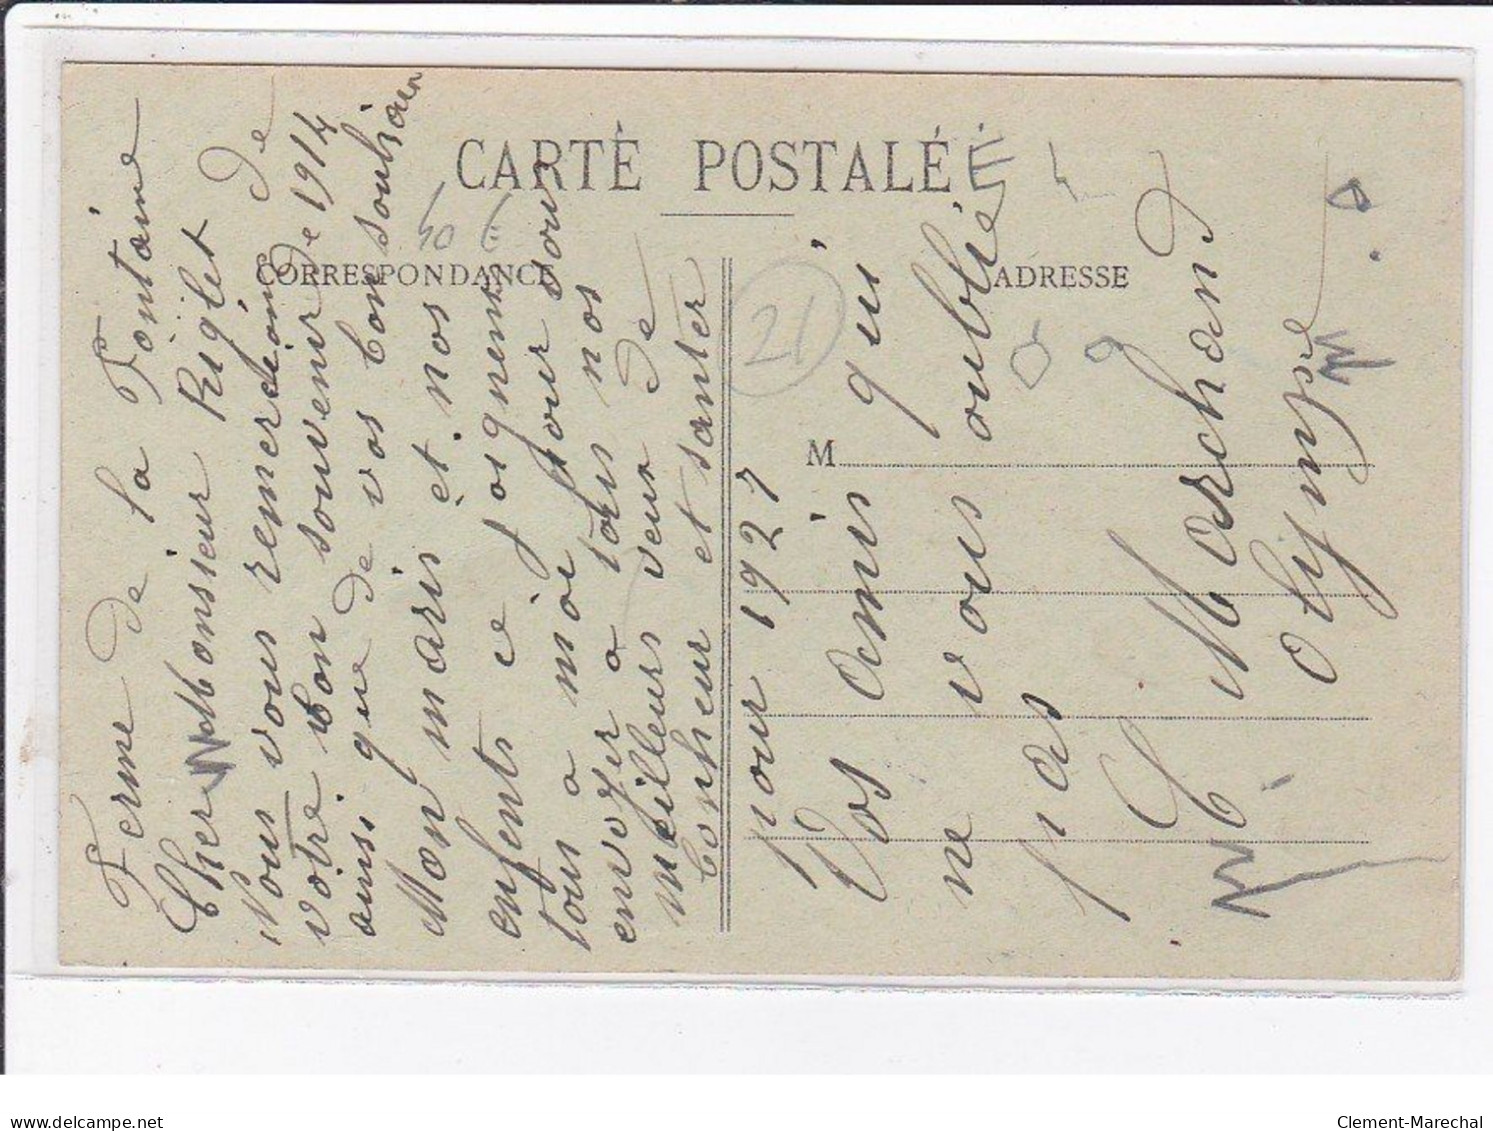 CARTE POSTALE
CORRESPONDANCE
ADRESSE
M
21
40 E
Ferme de la Fontaine
Cher Monsieur Riglet
Nous vous remercions de
votre bon souvenir de 1914
ainsi que de vos bon souhain
Mon maris et nos
enfents ce joignent
tous a moi pour vous
envoyer a tous nos
meilleurs veux de
bonheur et santer
pour 1927
Vos Amis qui
ne vous oublié
pas
C Marchand
Olijmpe
Clement-Marechal
delcampe.net